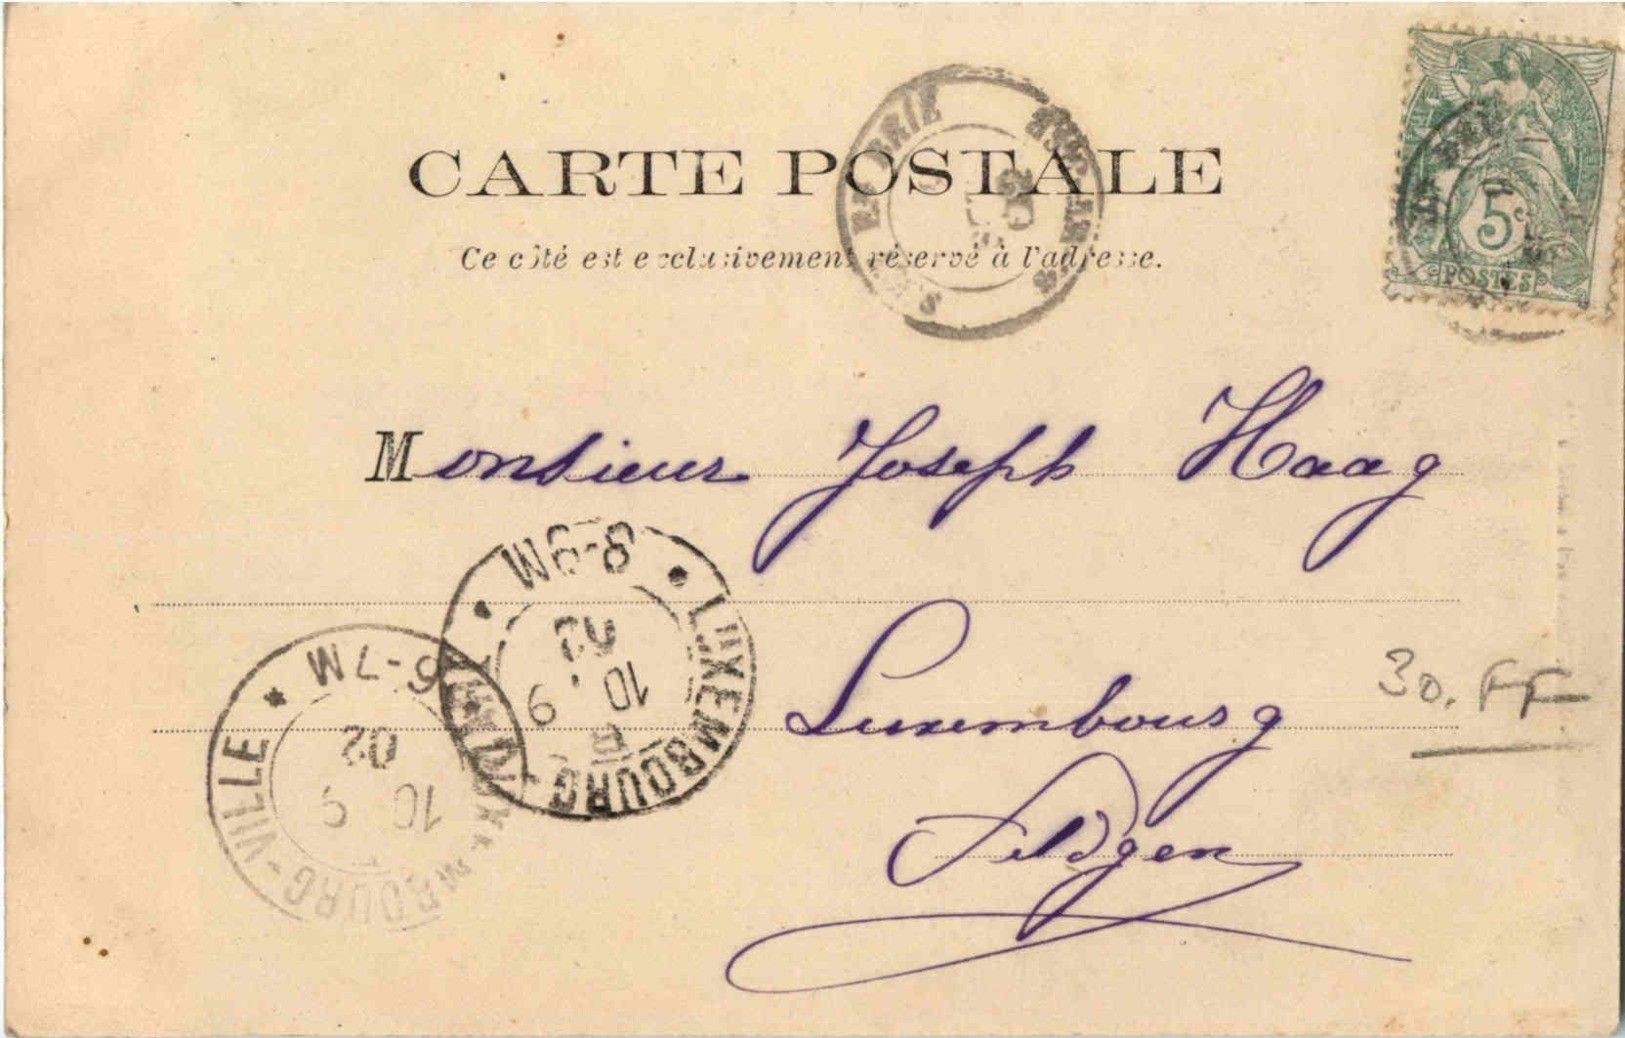 CARTE POSTALE
Ce côté est exclusivement réservé à l'adresse.
5c
POSTES
EN BRIE
Monsieur Joseph Haag
Luxembourg
Feldgen
30. FF
LUXEMBOURG-VILLE
8-9M
10 9
02
LUXEMBOURG-VILLE
6-7M
10 9
02